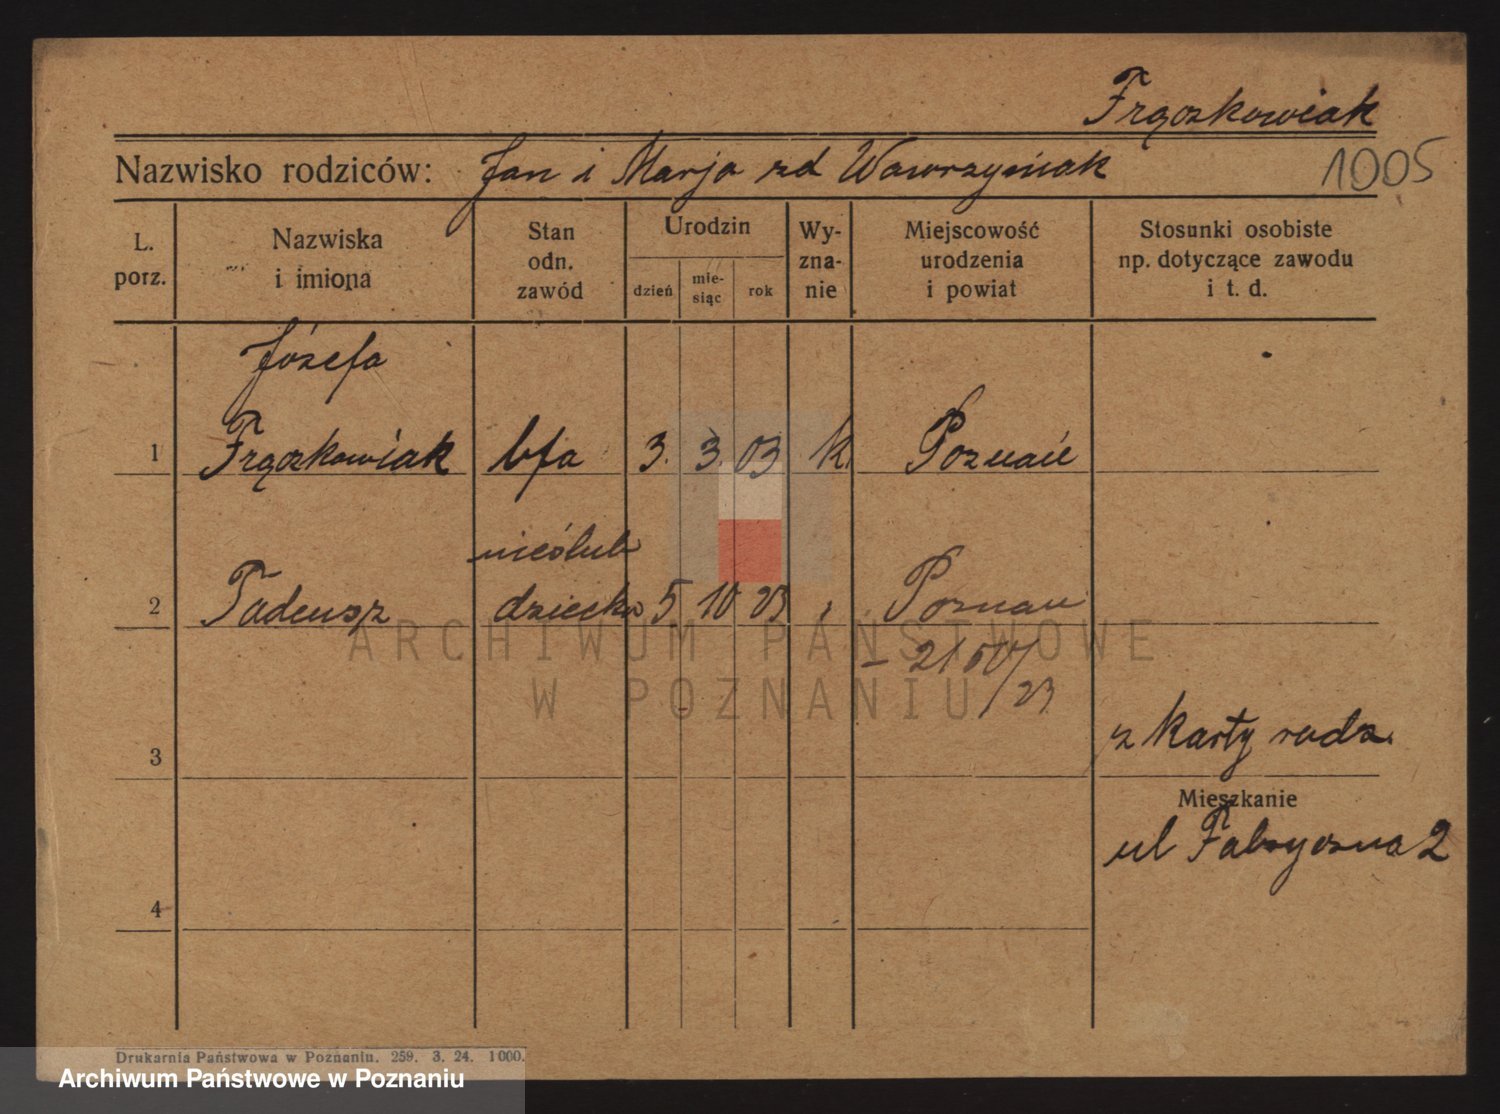 Frączkowiak
Nazwisko rodziców: Jan i Marja zd Wawrzyniak
1005
L. porz.
Nazwiska i imiona
Stan odn. zawód
Urodzin
dzień
mie-
siąc
rok
Wy-
zna-
nie
Miejscowość urodzenia i powiat
Stosunki osobiste np. dotyczące zawodu i t. d.
Józefa
1 Frączkowiak bfa 3. 3. 03 k. Poznań
nieślub
2 Tadeusz dziecko 5 10 23 Poznań
ARCHIWUM PAŃSTWOWE
W POZNANIU
/23
3 z karty rodz.
Mieszkanie
ul Fabryczna 2
4
Drukarnia Państwowa w Poznaniu. 259. 3. 24. 1000.
Archiwum Państwowe w Poznaniu